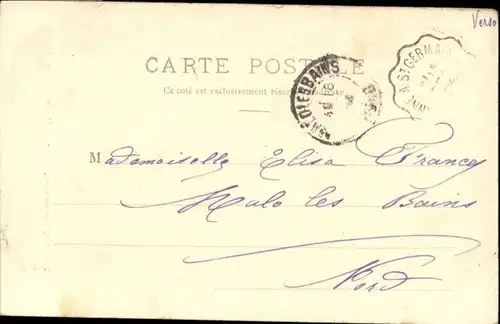 Verso
CARTE POSTALE
Ce coté est exclusivement
A St GERMAI
LO LES BAINS
Mademoiselle Elisa Francq
Malo les Bains
Nord